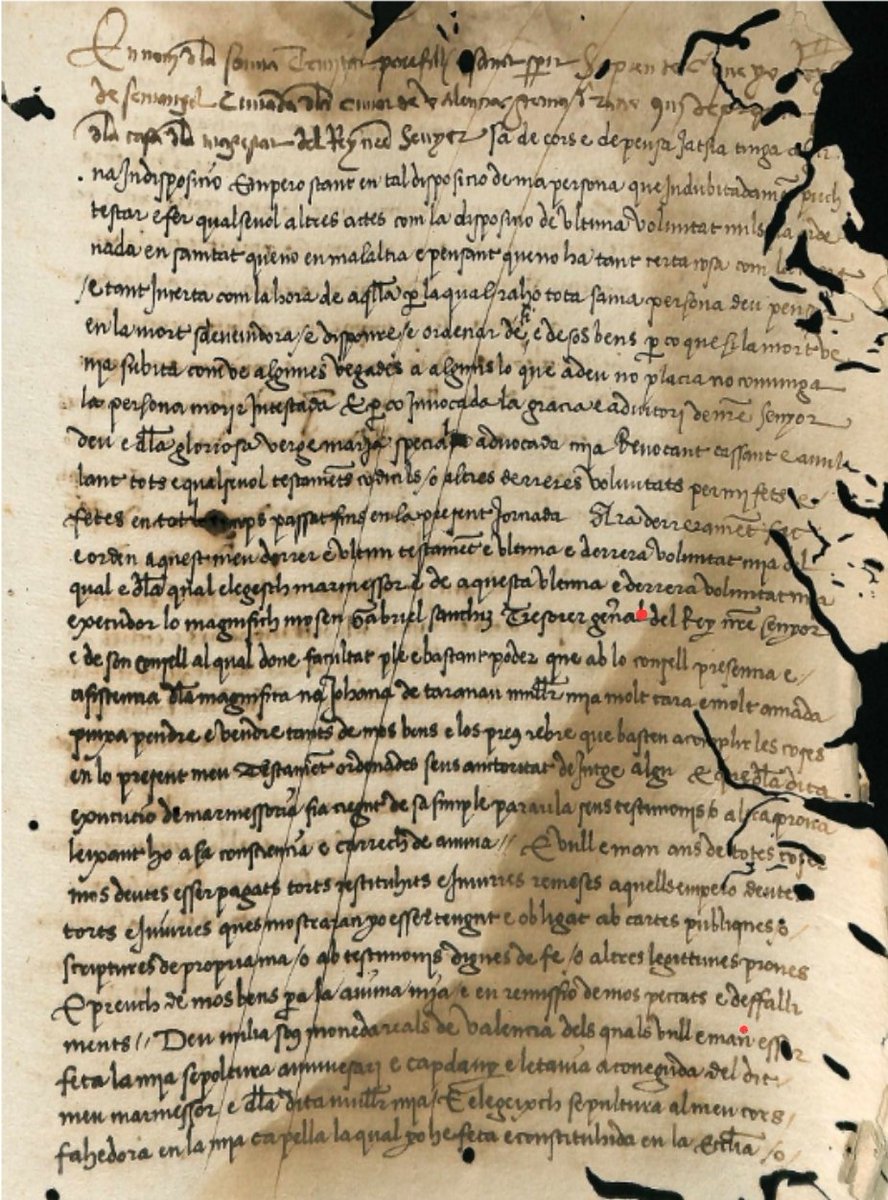 En nom dla sancta Trinitat pare fill e sanct sperit Sapien tots que yo
de Sentangel Ciutada dla Ciutat de Valencia
dla casa dla magestat del Rey nre Senyor sa de cors e de pensa Jatsia tinga
na Indisposicio Empero stant en tal disposicio de ma persona que Indubitadamet puch
testar e fer qualsevol altres actes com la disposicio de ultima voluntat mils sia orde
nada en sanitat que no en malaltia e pensant que no ha tant certa cosa com la
/e tant Incerta com la hora de aqlla p la qual raho tota sana persona deu pen
en la mort sdevenidora /e dispondre /e ordenar de si e de sos bens p ço que si la mort ve
nia subita com ve algunes vegades a alguns lo que a deu no placia no convinga
la persona morir Intestada E p ço Invocada la gracia e adiutori de nre Senyor
deu e dla gloriosa verge maria special advocada mia Revocant cassant e anulla
lant tots e qualsevol testamets codicils /o altres derreres voluntats per mi fets e
fetes en tot temps passat fins en la present Jornada Ara derrerament faç
e orden aquest meu derrer e ultim testamet e ultima e derrera voluntat mia del
qual e dla qual elegesch marmessor e de aquesta ultima e derrera voluntat mia
executor lo magnifich mosen Gabriel sanchiz Tresorer genal del Rey nre Senyor
e de son Consell al qual done facultat ple e bastant poder que ab lo consell presencia e/
asistencia dla magnifica na Johana de taranau mullr mia molt cara e molt amada
puixa pendre e vendre tants de mos bens e los preus rebre que basten a complir les coses
en lo present meu Testamet ordenades sens auctoritat de Jutge algu E que dla dita
execucio de marmessoria sia cregut de sa simple paraula sens testimonis o altra prova
leixant ho a sa consciencia e carrech de anima // E vull e man ans de totes coses
mos deutes esser pagats torts restituhits e Injuries remeses aquells empero deutes
torts e Injuries ques mostraran yo esser tengut e obligat ab cartes publiques /o
scriptures de propria ma /o ab testimonis dignes de fe /o altres legittimes proves
E prench de mos bens pa la anima mia e en remissio de mos peccats e deffalli
ments // Deu milia sous moneda reals de Valencia dels quals vull e man esser
feta la mia sepoltura anniversari e capdany e letania a coneguda del dit
meu marmessor e dla dita mullr mia / E elegeixch sepultura al meu cors /
fahedora en la mia capella la qual yo he feta e constituhida en la Ecclia /o/